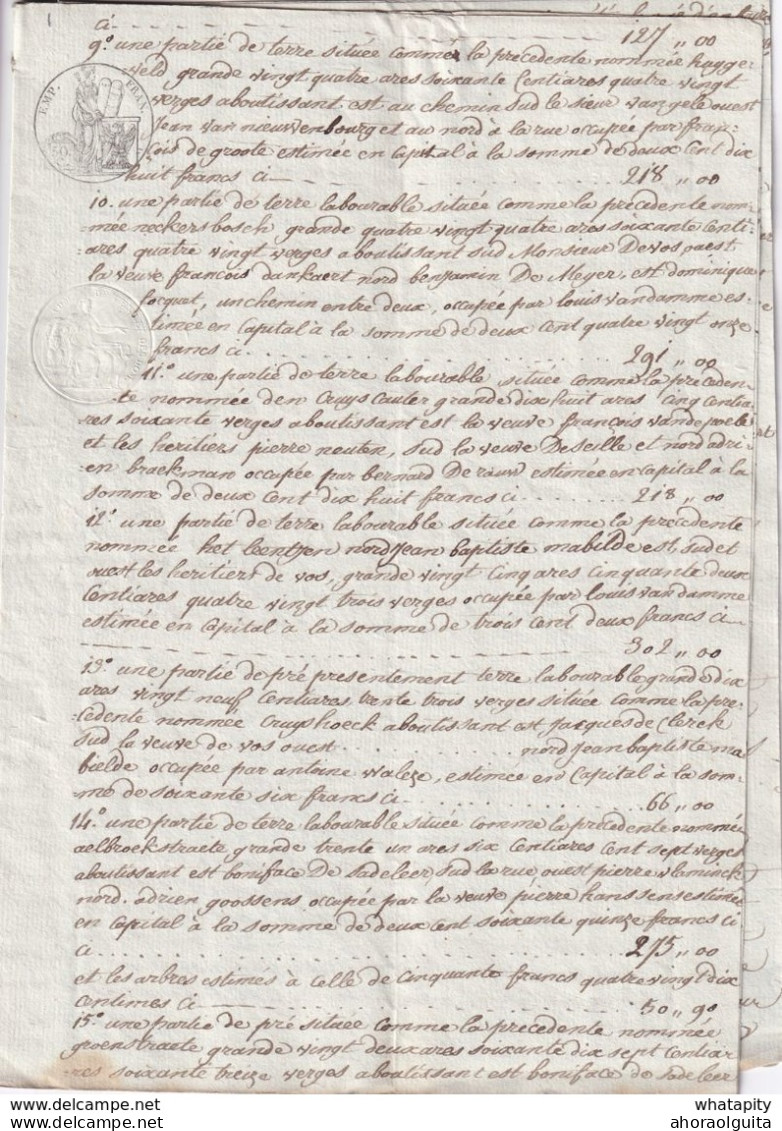 ci 127 ,, 00
9.° une partie de terre située comme la precedente nommée hagge
veld grande vingt quatre ares soixante Centiares quatre vingt
verges aboutissant est au chemin sud le sœur van gele ouest
Jean van nieuwenbourg et au nord à la rue occupée par fran-
cois de groote estimée en capital à la somme de deux Cent dix
huit francs ci 218 ,, 00
EMP. FRAN
10. une partie de terre labourable située comme la précedente nom-
mée neckersbosch grande quatre vingt quatre ares soixante Centi-
ares quatre vingt verges aboutissant sud Monsieur Devos ouest
la veuve françois dankaert nord benjamin De Meyer, est dominique
focquet, un chemin entre deux, occupée par louis vandamme es-
timée en Capital à la somme de deux Cent quatre vingt onze
francs ci 291 ,, 00
11.° une partie de terre labourable située comme la preceden-
te nommée den Cruys Cauter grande dix huit ares Cinq Centia-
res soixante verges aboutissant est la veuve françois vande poele
et les heritiers pierre neuten, sud la veuve Deseille et nord adri-
en braekman occupée par bernard De rauw estimée en capital à la
somme de deux Cent dix huit francs ci 218 ,, 00
12.° une partie de terre labourable située comme la precedente
nommée het leentjen nord Jean baptiste mabilde est, sud et
ouest les heritiers de vos, grande vingt Cinq ares Cinquante deux
Centiares quatre vingt trois verges occupée par louis vandamme
estimée en Capital à la somme de trois Cent deux francs ci
302 ,, 00
13.° une partie de pré presentement terre labourable grande dix
ares vingt neuf Centiares trente trois verges située comme la pre-
cedente nommée Cruyshoeck aboutissant est Jacques de Clerck
sud la veuve de vos ouest nord Jean baptiste ma
bielde occupée par antoine waleze, estimée en Capital à la som-
me de soixante six francs ci 66 ,, 00
14.° une partie de terre labourable située comme la precedente nommée
aelbroekstraete grande trente un ares six Centiares Cent sept verges
aboutissant est boniface De Sadeleer, sud la rue ouest pierre vleminck
nord adrien goossens occupée par la veuve pierre hanssens estimée
en capital à la somme de deux cent soixante quinze francs ci
ci 275 ,, 00
et les arbres estimés à celle de Cinquante francs quatre vingt dix
Centimes ci 50 ,, 90
15.° une partie de pré située comme la precedente nommée
groenstraete grande vingt deux ares soixante dix sept Centia-
res soixante treize verges aboutissant est boniface de sadeleer
whatapity
ahoraolguita